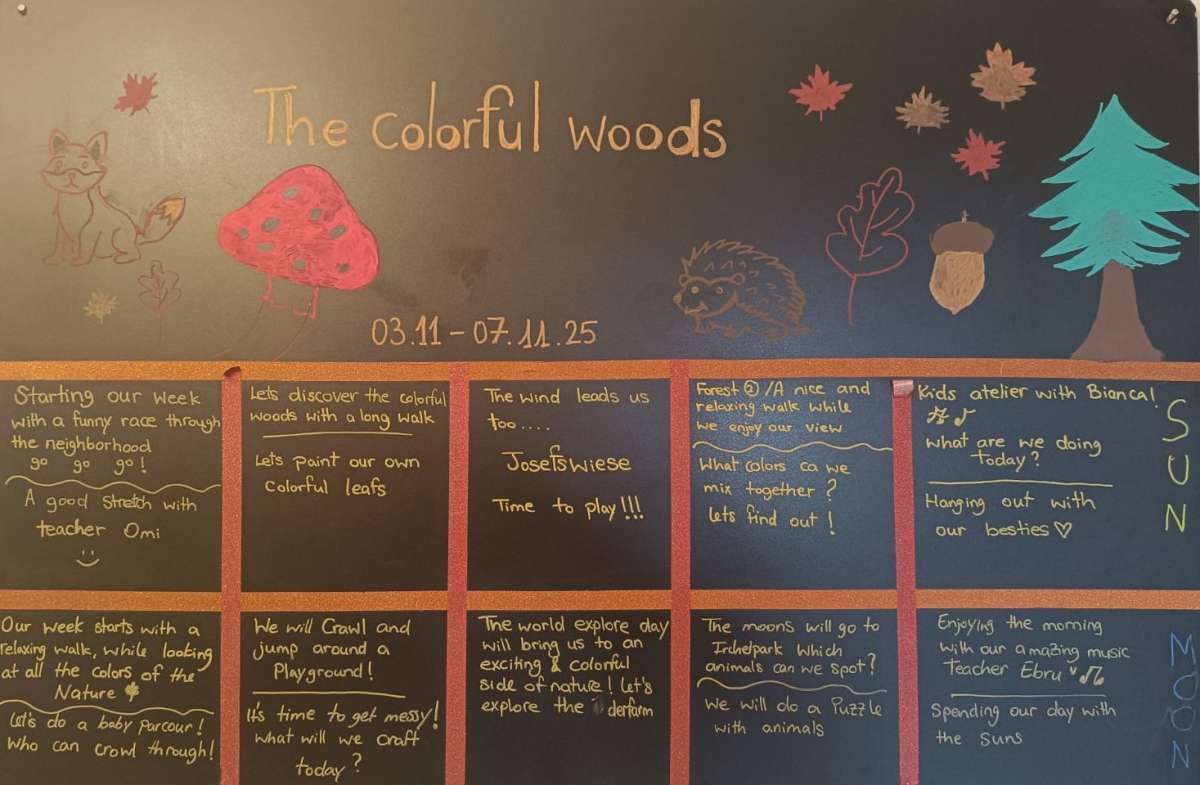 The colorful woods
03.11 - 07.11.25
Starting our week
with a funny race through
the neighborhood
go go go!
A good stretch with
teacher Omi
Lets discover the colorful
woods with a long walk
Lets paint our own
colorful leafs
The wind leads us
too....
Josefswiese
Time to play!!!
Forest ② /A nice and
relaxing walk while
we enjoy our view
What colors ca we
mix together?
Lets find out!
Kids atelier with Bianca!
What are we doing
today?
Hanging out with
our besties ♡
SUN
Our week starts with a
relaxing walk, while looking
at all the colors of the
Nature
Let's do a baby parcour!
Who can crowl through!
We will Crawl and
jump around a
Playground!
It's time to get messy!
What will we craft
today?
The world explore day
will bring us to an
exciting & colorful
side of nature! Let's
explore the derfarm
The moons will go to
Irchelpark Which
animals can we spot?
We will do a Puzzle
with animals
Enjoying the morning
with our amazing music
Teacher Ebru ♥ ♫
Spending our day with
the suns
MOON